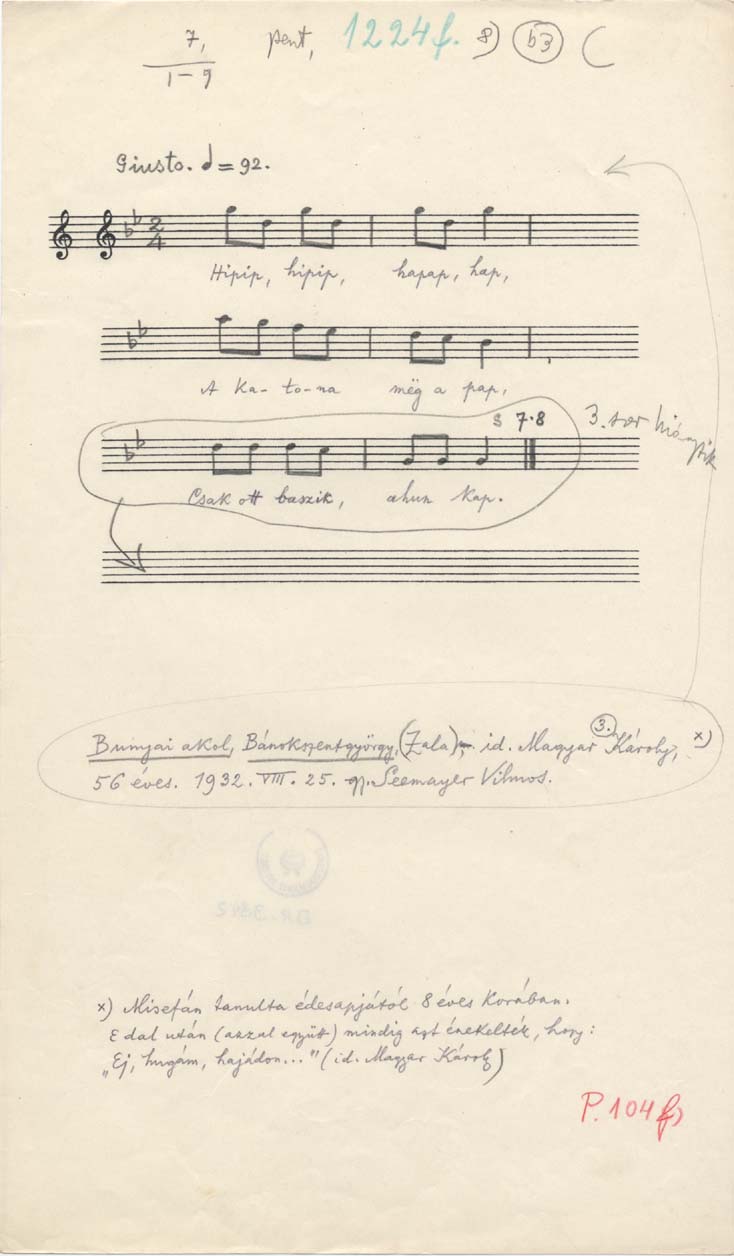 7, pent, 1224f. 8) b3 (
1-9
Giusto. = 92.
2
4
Hipip, hipip, hapap, hap,
A ka-to-na még a pap,
7.8
3. sor hiányzik
Csak ott baszik, ahun kap.
3.
Bánokszentgyörgy, (Zala), id. Magyar Károly, x)
56 éves. 1932. VIII. 25. gy. Seemayer Vilmos.
x) Misefán tanulta édesapjától 8 éves korában.
E dal után (azzal együtt) mindig azt énekelték, hogy:
"Ej, hugám, hajádon..." (id. Magyar Károly)
P. 104 f)